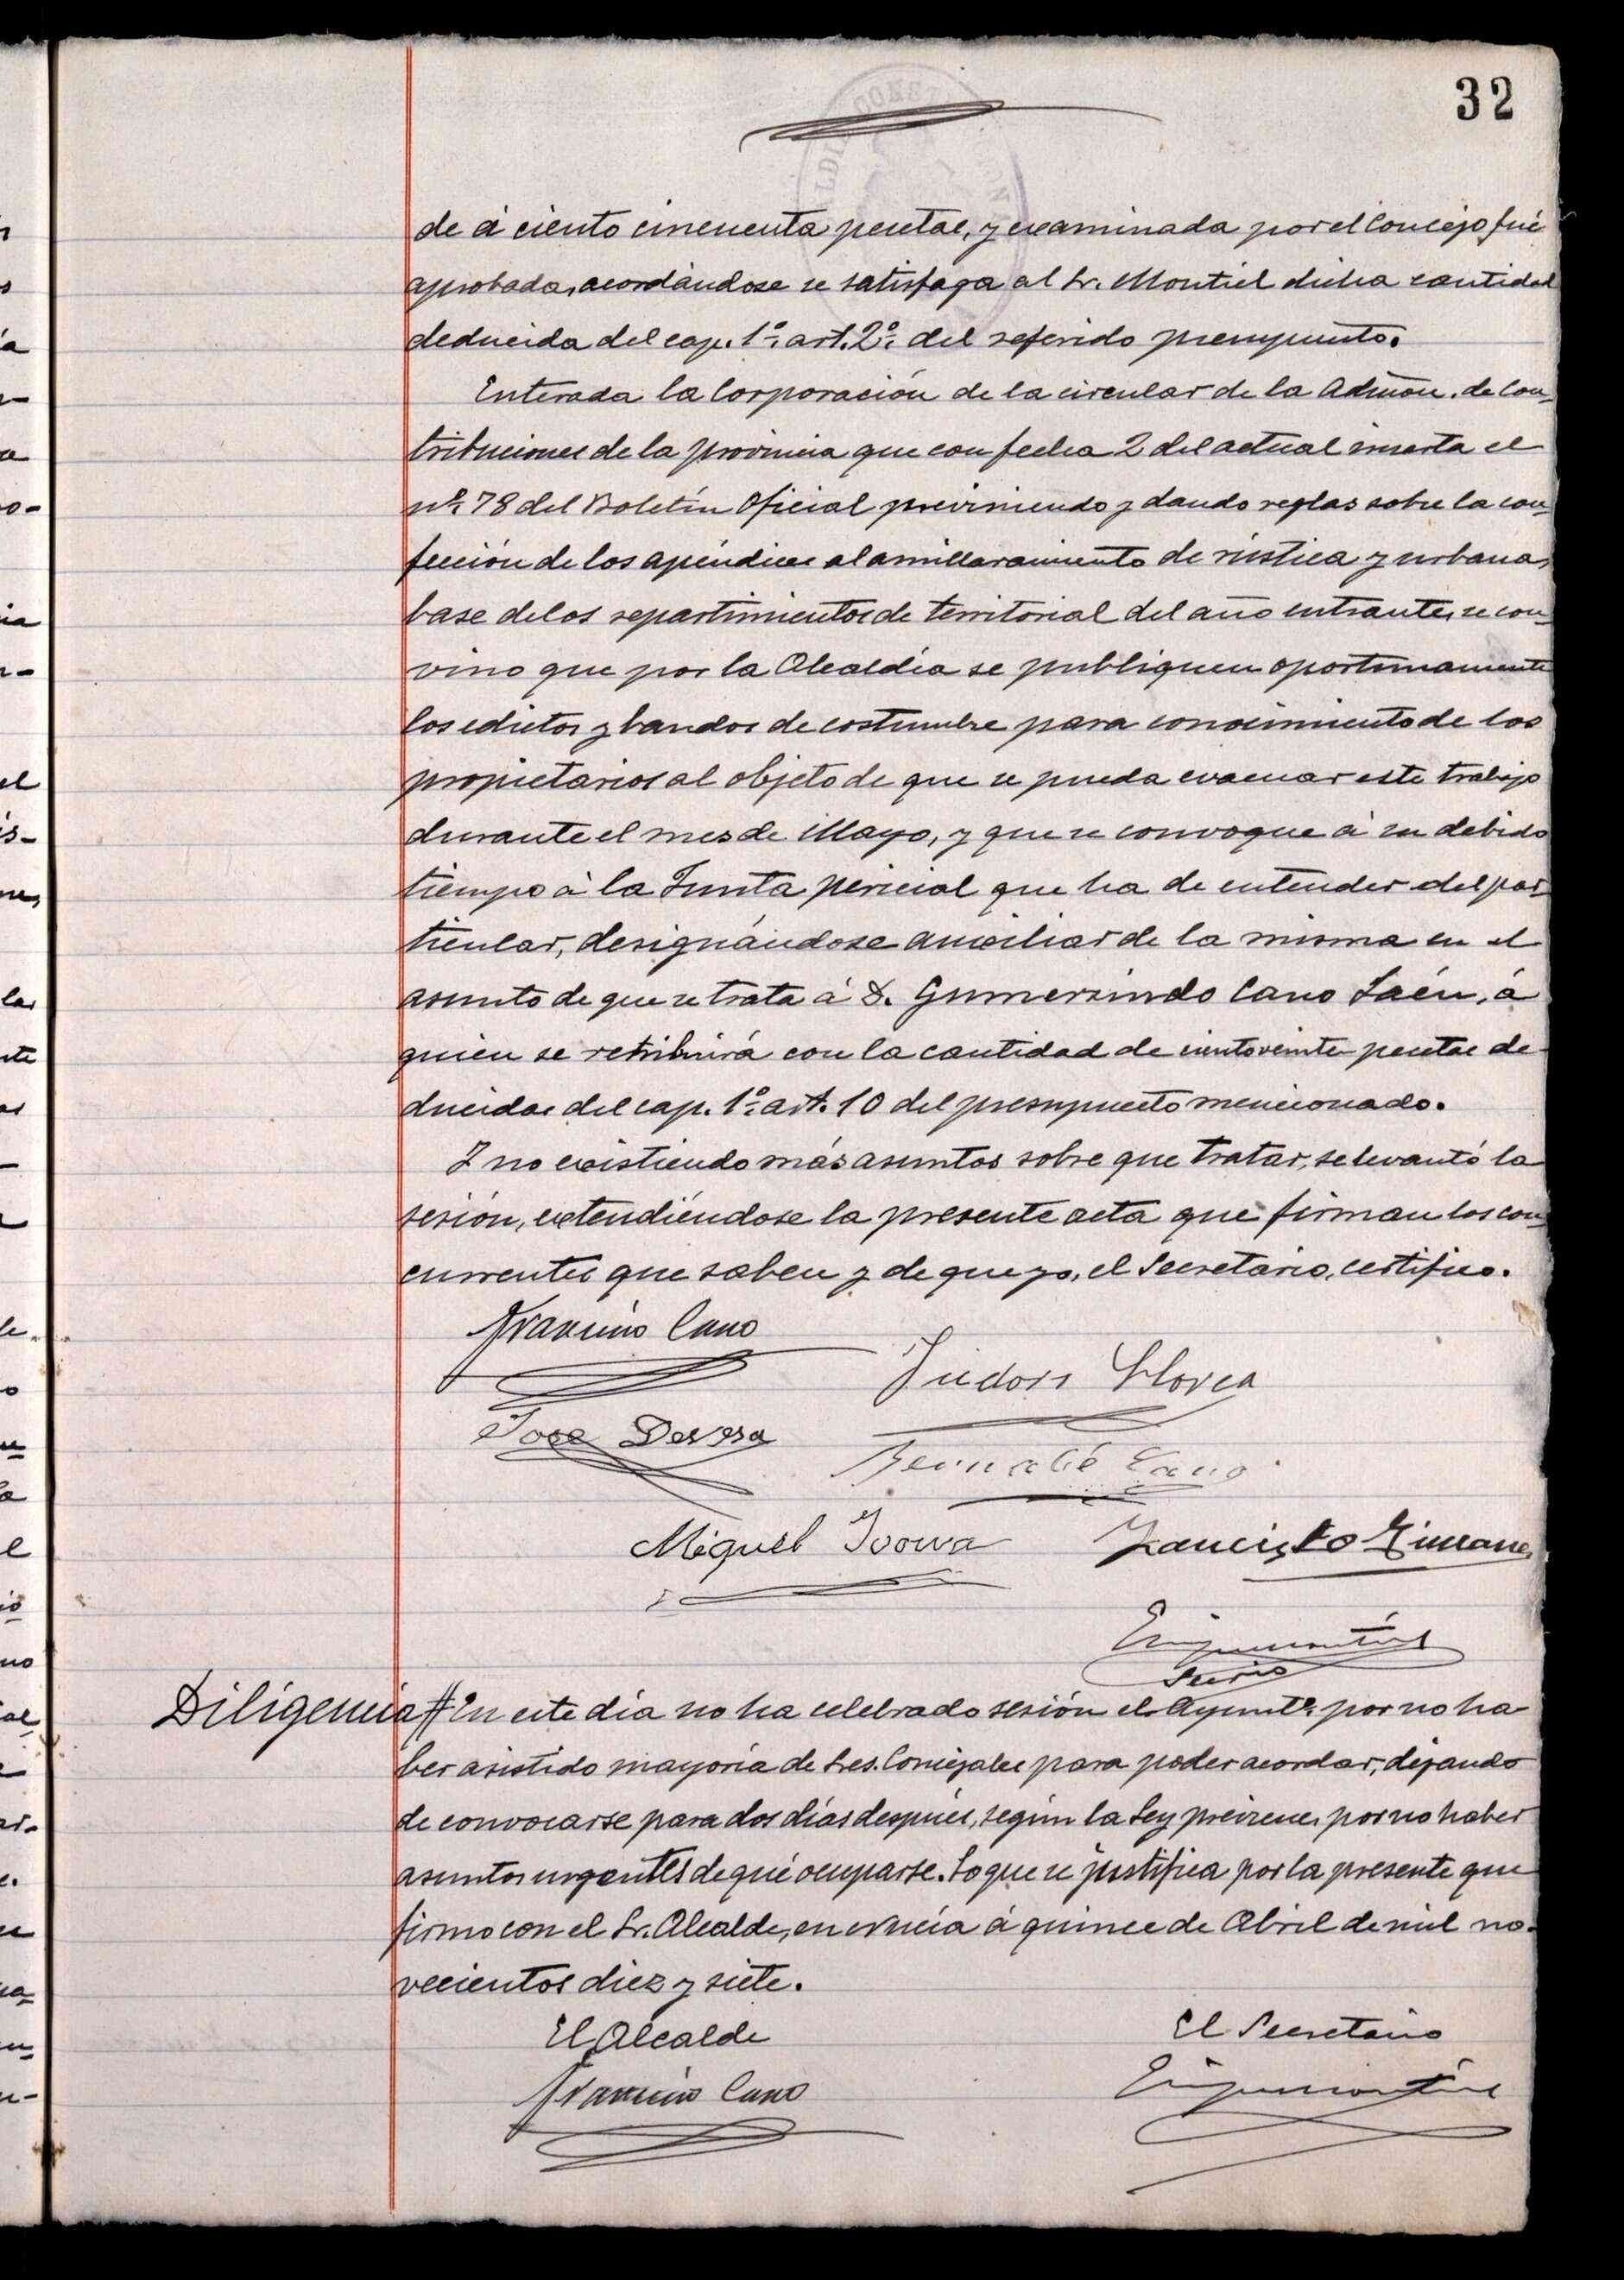 32
de á ciento cincuenta pesetas, y examinada por el Concejo fué
aprobada, acordándose se satisfaga al Sr. Montiel dicha cantidad
deducida del cap. 1º art. 2º del referido presupuesto.
Enterada la Corporación de la circular de la Admón. de Con-
tribuciones de la provincia que con fecha 2 del actual inserta el
nº 78 del Boletín Oficial previniendo y dando reglas sobre la con-
fección de los apéndices al amillaramiento de rústica y urbana,
base de los repartimientos de territorial del año entrante, se con-
vino que por la Alcaldía se publiquen oportunamente
los edictos y bandos de costumbre para conocimiento de los
propietarios al objeto de que se pueda evacuar este trabajo
durante el mes de Mayo, y que se convoque á su debido
tiempo á la Junta pericial que ha de entender del par-
ticular, designándose auxiliar de la misma en el
asunto de que se trata á D. Gumersindo Cano Saén, á
quien se retribuirá con la cantidad de ciento veinte pesetas de-
ducidas del cap. 1º art. 10 del presupuesto mencionado.
Y no existiendo más asuntos sobre que tratar, se levantó la
sesión, extendiéndose la presente acta que firman los con-
currentes que saben y de que yo, el Secretario, certifico.
Cano
Isidoro Llorca
Jose Devesa
Bernabé Cano
Miguel
Francisco
Srio
Diligencia # En este día no ha celebrado sesión el Ayuntº por no ha-
ber asistido mayoría de Sres. Concejales para poder acordar, dejando
de convocarse para dos días después, según la Ley previene, por no haber
asuntos urgentes de qué ocuparse. Lo que se justifica por la presente que
firmo con el Sr. Alcalde, en á quince de Abril de mil no-
vecientos diez y siete.
El Alcalde
El Secretario
Cano